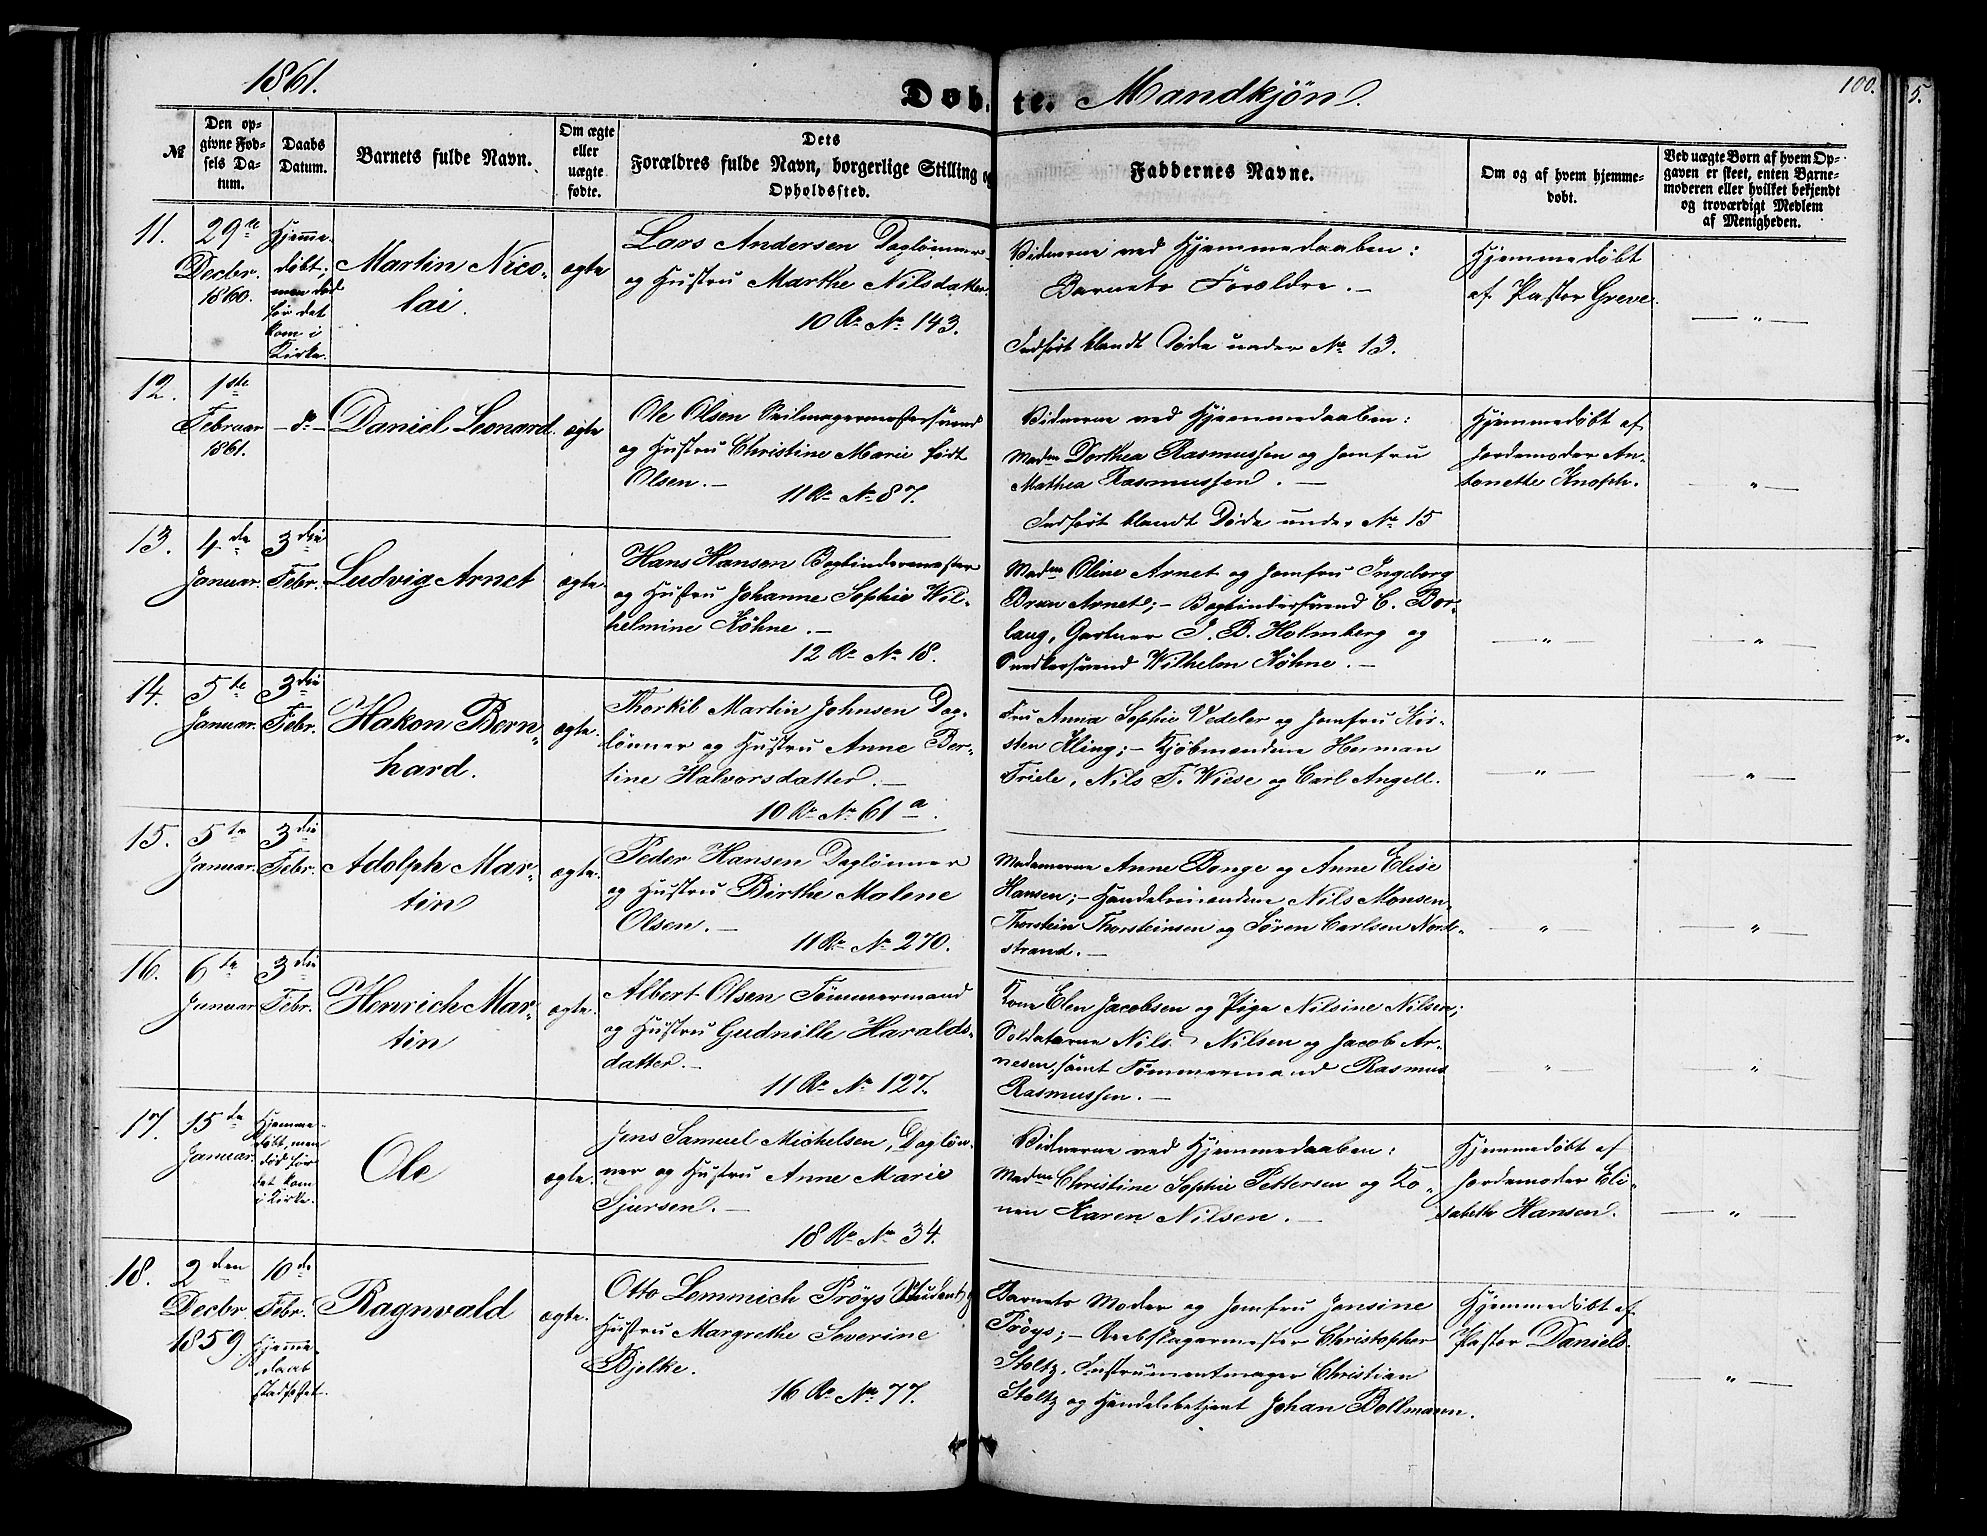 1861.
Døbte. Mandkjøn.
100.
5.
№
Den op-
givne Fød-
sels Da-
tum.
Daabs
Datum.
Barnets fulde Navn.
Om ægte
eller
uægte
fødte.
Dets
Forældres fulde Navn, borgerlige Stilling og
Opholdssted.
Faddernes Navne.
Om og af hvem hjemme-
døbt.
Ved uægte Børn af hvem Op-
gaven er skeet, enten Barne-
moderen eller hvilket bekjendt
og troværdigt Medlem
af Menigheden.
11.
29de
Decbr.
1860.
Hjemme-
døbt;
men død
før det
kom i
Kirke.
Martin Nico-
lai.
ægte
Lars Andersen Daglønner
og Hustru Marthe Nilsdatter.
10 R. No. 143.
Vidnerne ved Hjemmedaaben:
Barnets Forældre. —
Indført blandt Døde under No. 13.
Hjemmedøbt
af Pastor Greve.
— " —
12.
1ste
Februar
1861.
— do —
Daniel Leonard.
ægte
Ole Olsen Seilmagermestersvend
og Hustru Christine Marie født
Olsen. —
11 R. No. 87.
Vidnerne ved Hjemmedaaben:
Madm Dorthea Rasmussen og Jomfru
Mathea Rasmussen. —
Indført blandt Døde under No. 15
Hjemmedøbt af
Jordemoder An-
tonette Knoph.
— " —
13.
4de
Januar.
3die
Febr.
Ludvig Arnet
ægte.
Hans Hansen Bogbindermester
og Hustru Johanne Sophie Wil-
helmine Köhne. —
12 R. No. 18.
Madm Oline Arnet og Jomfru Ingeborg
Brun Arnet; — Bogbindersvend C. Bor-
laug, Gartner J. B. Holmberg og
Snedkersvend Wilhelm Köhne. —
— " —
— " —
14.
5te
Januar.
3die
Febr.
Hakon Bern-
hard.
ægte.
Thorkil Martin Johnsen Dag-
lønner og Hustru Anne Ber-
tine Halvorsdatter. —
10 R. No. 61 a.
Fru Anna Sophie Vedeler og Jomfru Kir-
sten Kling; — Kjøbmændene Herman
Friele, Nils F. Wiese og Carl Angell.
— " —
— " —
15.
5te
Januar.
3die
Febr.
Adolph Mar-
tin
ægte.
Peder Hansen Daglønner
og Hustru Birthe Malene
Olsen. —
11 R. No. 270.
Madamerne Anne Bonge og Anne Elise
Hansen; — Handelsmændene Nils Monsen,
Thorstein Thorsteinsen og Søren Carlsen Nord-
strand. —
— " —
— " —
16.
6te
Januar
3die
Febr.
Henrich Mar-
tin
ægte.
Albert Olsen Tømmermand
og Hustru Gudnille Haralds-
datter. —
11 R. No. 127.
Kone Elen Jacobsen og Pige Nilsine Nilsen;
Soldaterne Nils Nilsen og Jacob Ar-
nesen, samt Tømmermand Rasmus
Rasmussen. —
— " —
— " —
17.
15de
Januar.
Hjemme-
døbt, men
død før
det kom
i Kirke.
Ole
ægte.
Jens Samuel Michelsen, Dagløn-
ner og Hustru Anne Marie
Sjursen. —
18 R. No. 34.
Vidnerne ved Hjemmedaaben:
Madm Christine Sophie Pettersen og Ko-
nen Karen Nilsen. —
Hjemmedøbt af
Jordemoder Eli-
sabeth Hansen.
— " —
18.
2den
Decbr
1859.
10de
Febr.
Hjemme-
daab
stadfæstet.
Ragnvald
ægte.
Otto Lemmich Prøys Student og
Hustru Margrethe Severine
Bjelke.
16 R. No. 77.
Barnets Moder og Jomfru Jansine
Prøys; — Reebslagermester Christopher
Stoltz, Instrumentmager Christian
Stoltz og Handelsbetjent Johan Bollmann.
Hjemmedøbt af
Pastor Daniels.
— " —